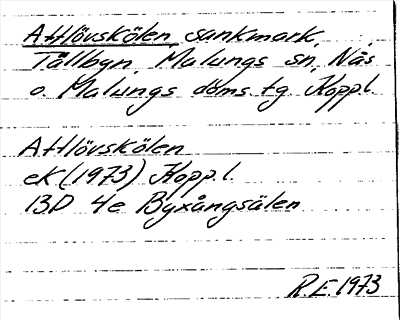 Attlövskölen, sankmark,
Tällbyn, Malungs sn, Nås
o. Malungs doms. tg Kopp.l.
Attlövskölen
eK (1973) Kopp.l.
13D 4e Byxångsälen
R.E. 1973